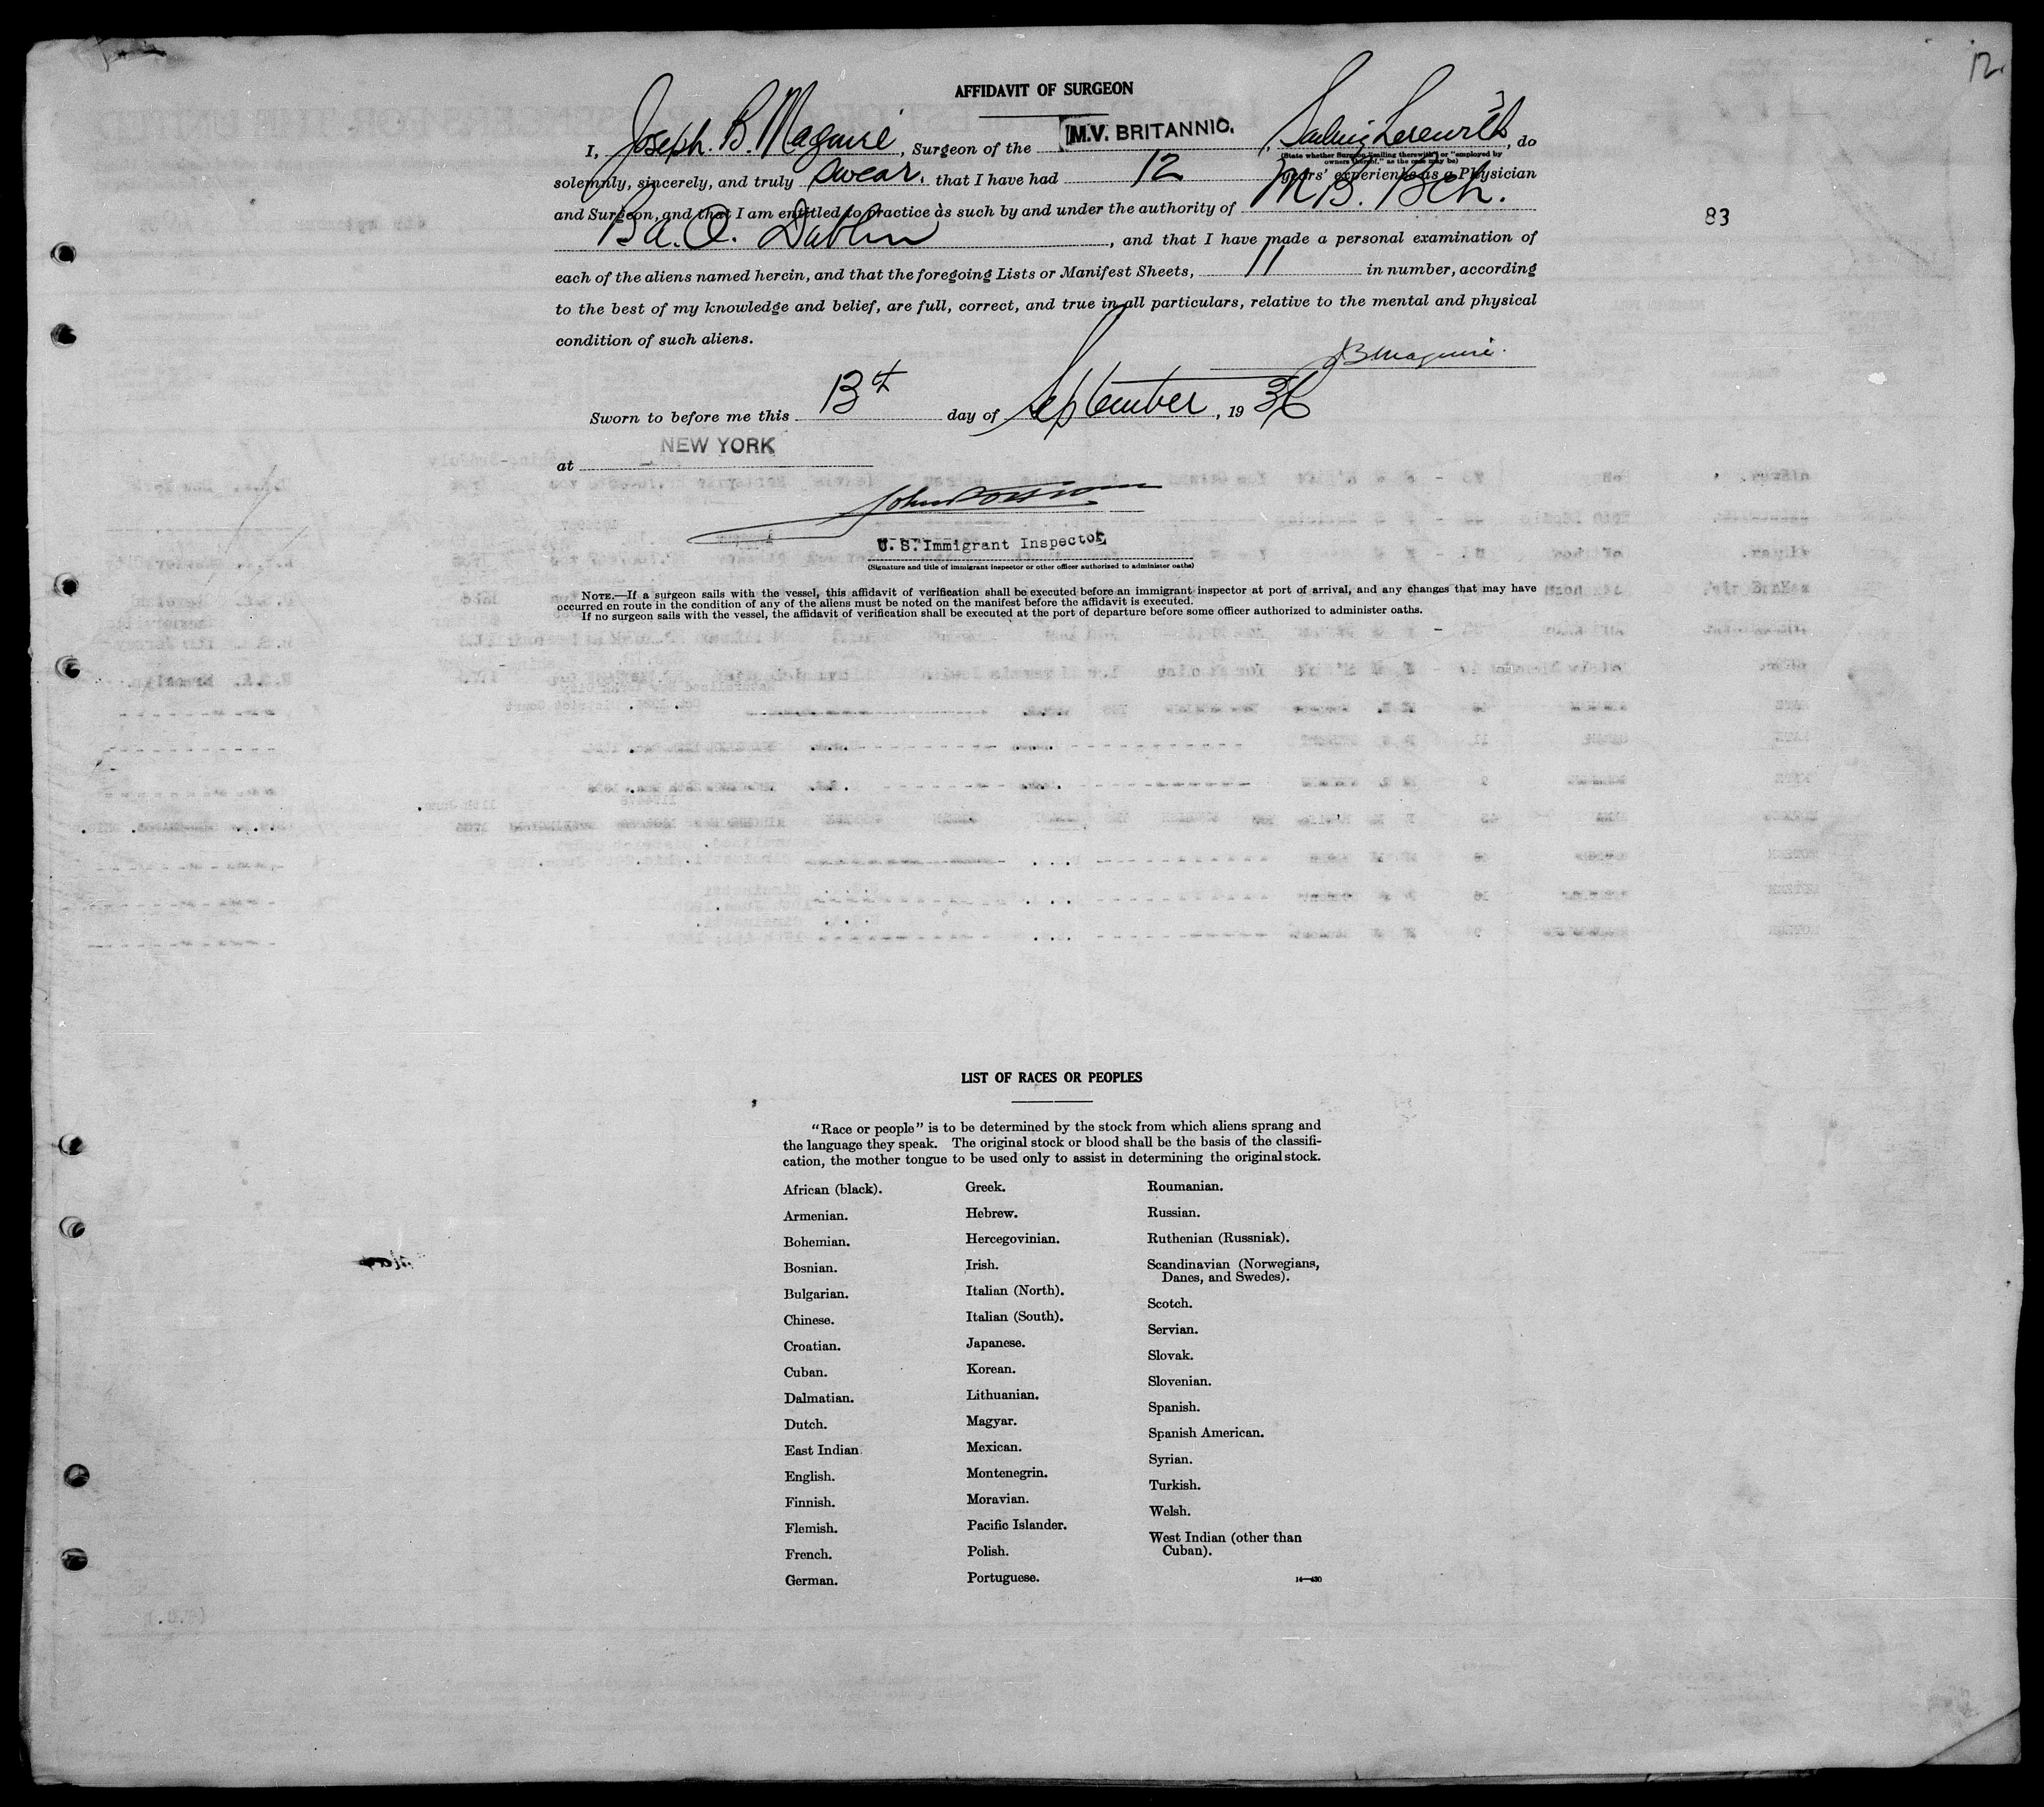 12
AFFIDAVIT OF SURGEON
I, Joseph. B. Maguire, Surgeon of the M.V. BRITANNIC., Sailing therewith, do
(State whether Surgeon "sailing therewith" or "employed by
owners thereof," as the case may be)
solemnly, sincerely, and truly swear. that I have had 12 years' experience as a Physician
and Surgeon, and that I am entitled to practice as such by and under the authority of M.B. BCh.
B a. O. Dublin, and that I have made a personal examination of
83
each of the aliens named herein, and that the foregoing Lists or Manifest Sheets, 11 in number, according
to the best of my knowledge and belief, are full, correct, and true in all particulars, relative to the mental and physical
condition of such aliens.
JBMaguire.
Sworn to before me this 13th day of September, 1936
at NEW YORK
U. S. Immigrant Inspector
(Signature and title of immigrant inspector or other officer authorized to administer oaths)
NOTE.—If a surgeon sails with the vessel, this affidavit of verification shall be executed before an immigrant inspector at port of arrival, and any changes that may have
occurred en route in the condition of any of the aliens must be noted on the manifest before the affidavit is executed.
If no surgeon sails with the vessel, the affidavit of verification shall be executed at the port of departure before some officer authorized to administer oaths.
LIST OF RACES OR PEOPLES
"Race or people" is to be determined by the stock from which aliens sprang and
the language they speak. The original stock or blood shall be the basis of the classifi-
cation, the mother tongue to be used only to assist in determining the original stock.
African (black).
Armenian.
Bohemian.
Bosnian.
Bulgarian.
Chinese.
Croatian.
Cuban.
Dalmatian.
Dutch.
East Indian.
English.
Finnish.
Flemish.
French.
German.
Greek.
Hebrew.
Hercegovinian.
Irish.
Italian (North).
Italian (South).
Japanese.
Korean.
Lithuanian.
Magyar.
Mexican.
Montenegrin.
Moravian.
Pacific Islander.
Polish.
Portuguese.
Roumanian.
Russian.
Ruthenian (Russniak).
Scandinavian (Norwegians,
Danes, and Swedes).
Scotch.
Servian.
Slovak.
Slovenian.
Spanish.
Spanish American.
Syrian.
Turkish.
Welsh.
West Indian (other than
Cuban).
14—430